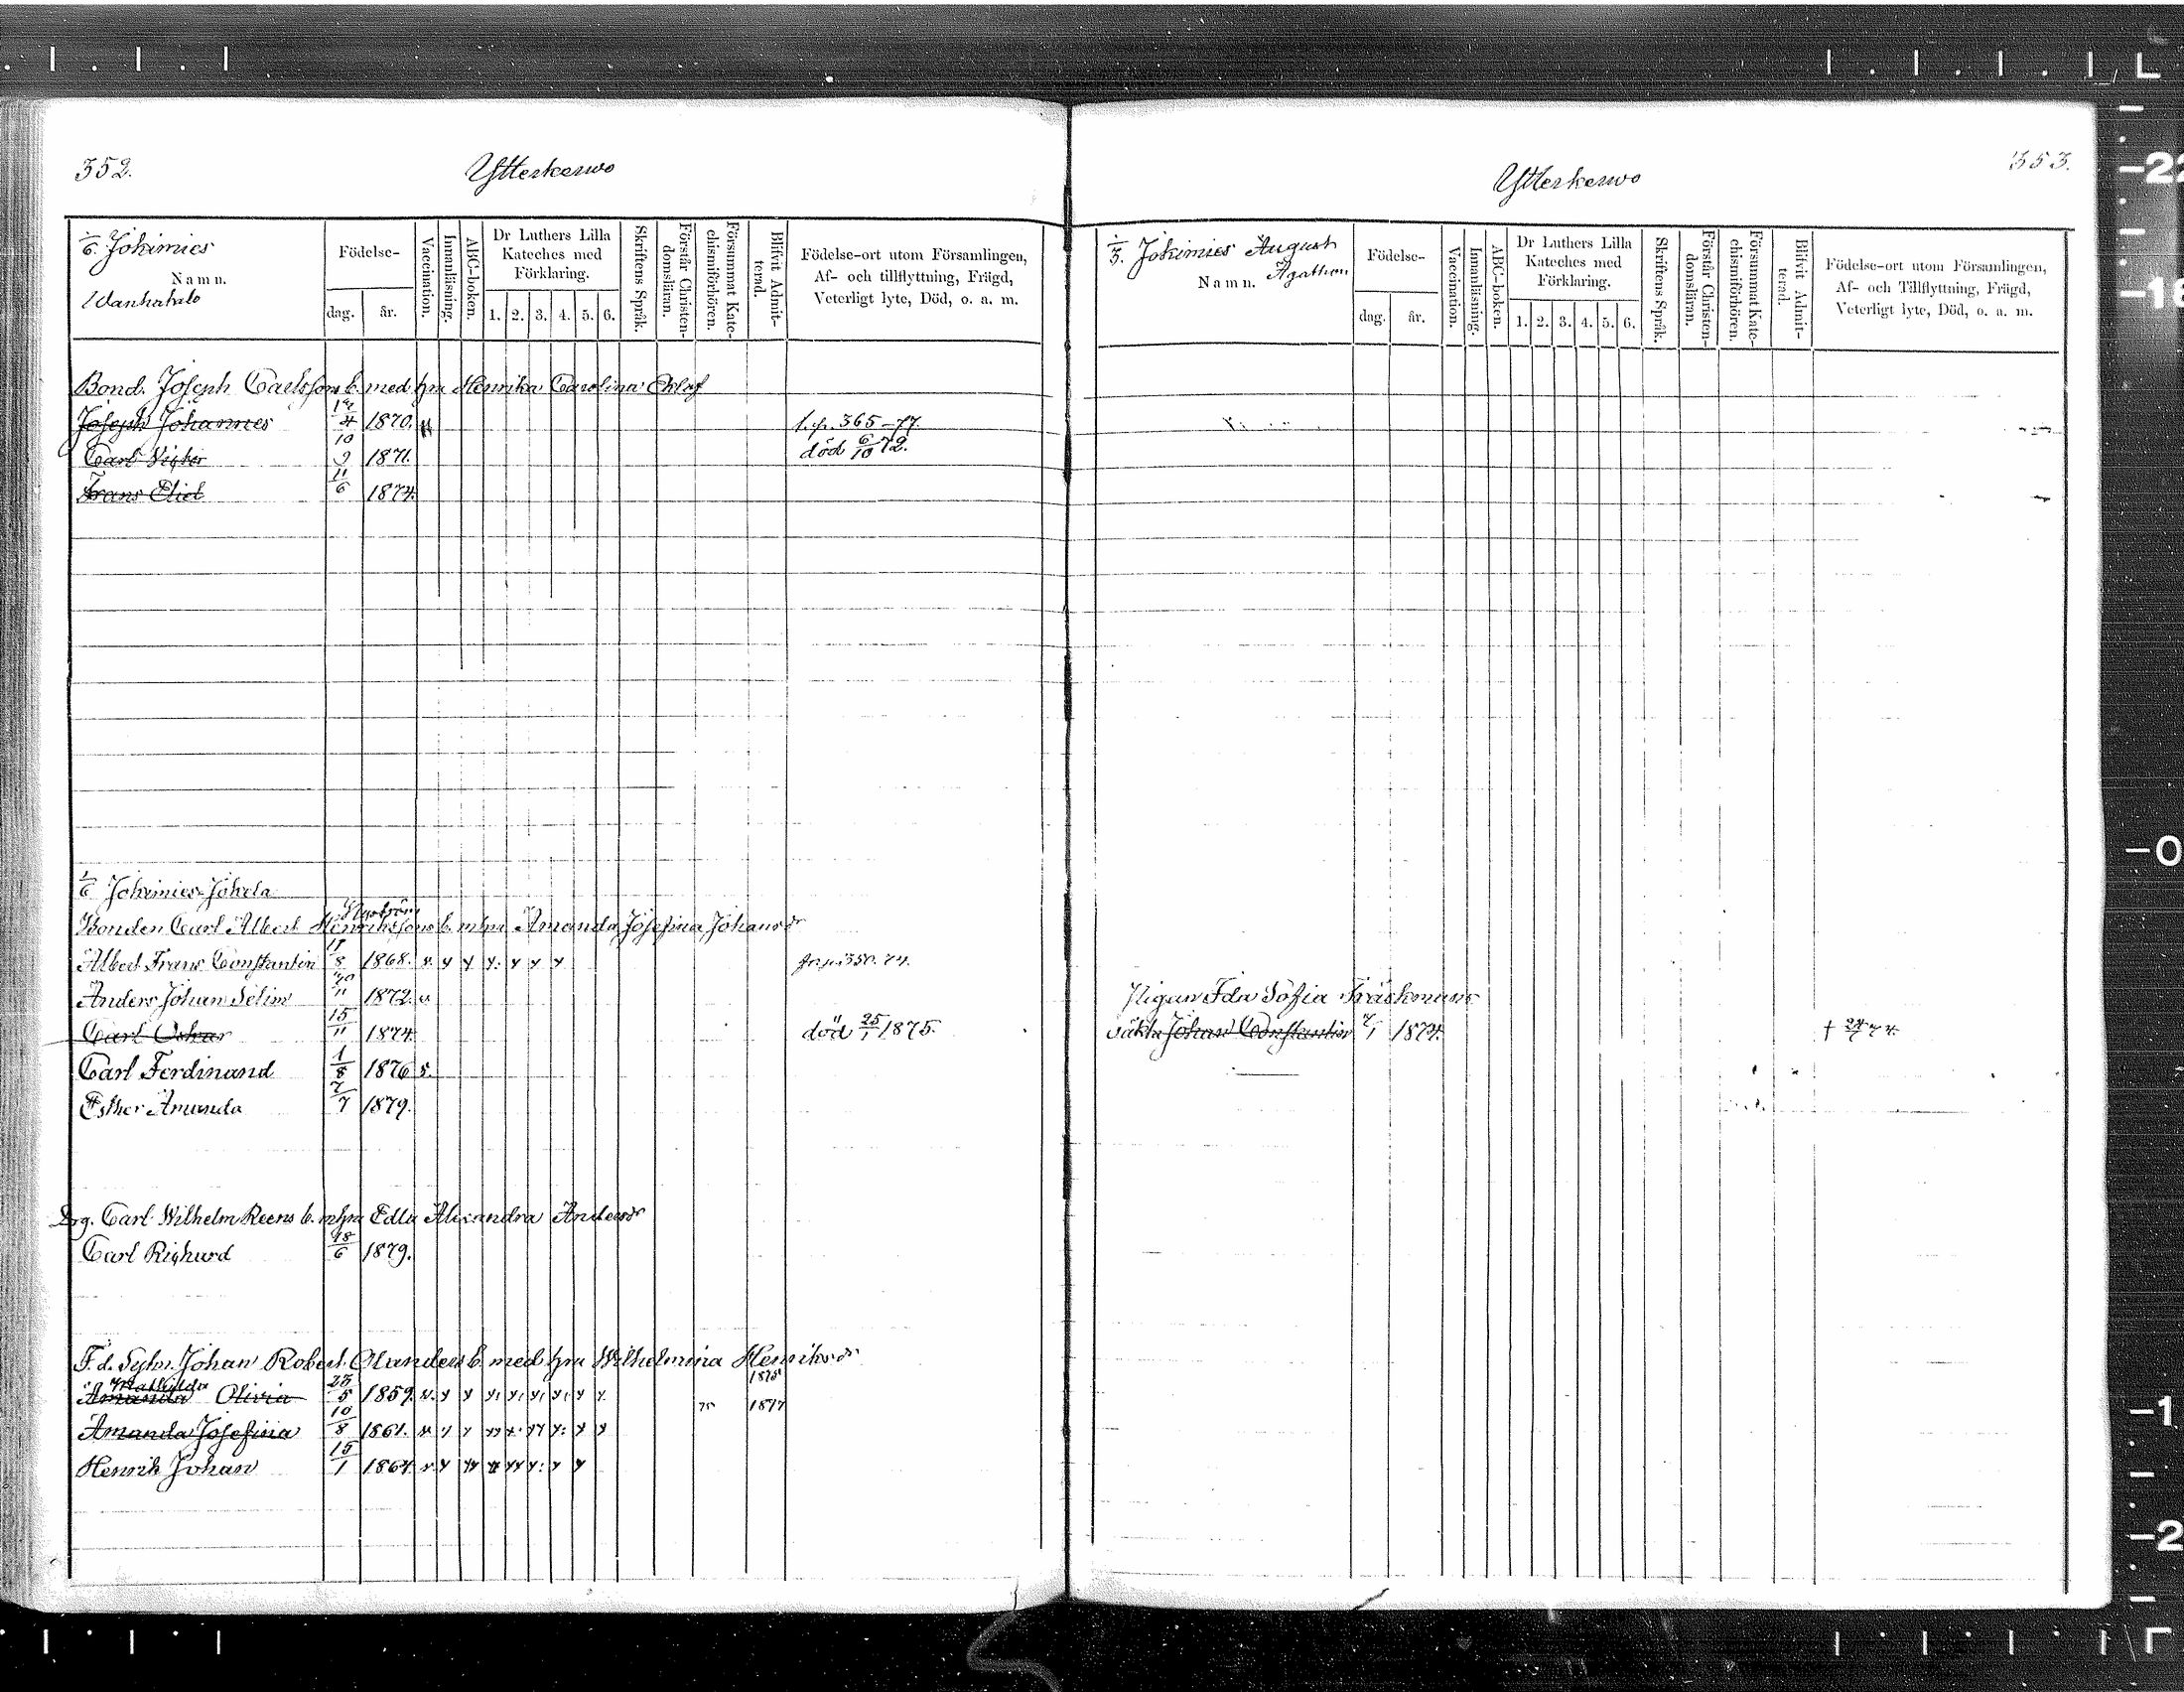 352.
Ytterkerwo
1/6. Jokimies
Wanhatalo
Namn.
Födelse-
dag.
år.
Vaccination.
Innanläsning.
ABC-boken.
Dr Luthers Lilla
Kateches med
Förklaring.
1. 2. 3. 4. 5. 6.
Skriftens Språk.
Förstår Christen-
domsläran.
Försummat Kate-
chismiförhören.
Blifvit Admit-
terad.
Födelse-ort utom Församlingen,
Af- och tillflyttning, Frägd,
Veterligt lyte, Död, o. a. m.
Bond. Joseph Carlssons b. med hu Henrika Carolina
Joseph Johannes 4 1870. f. p. 365-77.
Carl Victor 10/9 1871. död 6/10 72.
Frans Eliel 11/6 1874.
1/6 Jokimies Jokela
Nyström
Bonden Carl Albert Henrikssons b. m hu Amanda Josefina Johansdr
Albert Frans Constantin 8 1868. v. 350. 74.
Anders Johan Selim 11 1872. v
Carl Oskar 15/11 1874. död 25/1 1875.
Carl Ferdinand 1/8 1876
Esther Amanda 7/7 1879.
Drg. Carl Wilhelm Reens b. m hu Edla Alexandra Andersdr
Carl Rickard 18/6 1879.
F.d. Johan Robert Olanders b. med hu Wilhelmina Henriksdr
Mathilda 1875
Amanda Olivia 25/5 1859. v.
1877
Amanda Josefina 10/8 1861. v.
Henrik Johan 15/1 1864. v
353.
Ytterkerwo
1/3. Jokimies August
Agathon
Namn.
Födelse-
dag.
år.
Vaccination.
Innanläsning.
ABC-boken.
Dr Luthers Lilla
Kateches med
Förklaring.
1. 2. 3. 4. 5. 6.
Skriftens Språk.
Förstår Christen-
domsläran.
Försummat Kate-
chismiförhören.
Blifvit Admit-
terad.
Födelse-ort utom Församlingen,
Af- och Tillflyttning, Frägd,
Veterligt lyte, Död, o. a. m.
Pigan Ida Sofia Träskmans
oäkta Johan Constantin 7/1 1874.